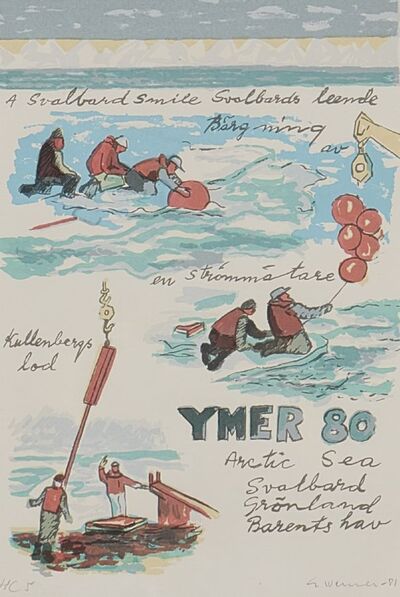 A Svalbard Smile Svalbards leende
Bärgning
av
en strömmätare
Kullenbergs
lod
YMER 80
Arctic Sea
Svalbard
Grönland
Barents hav
HC 5